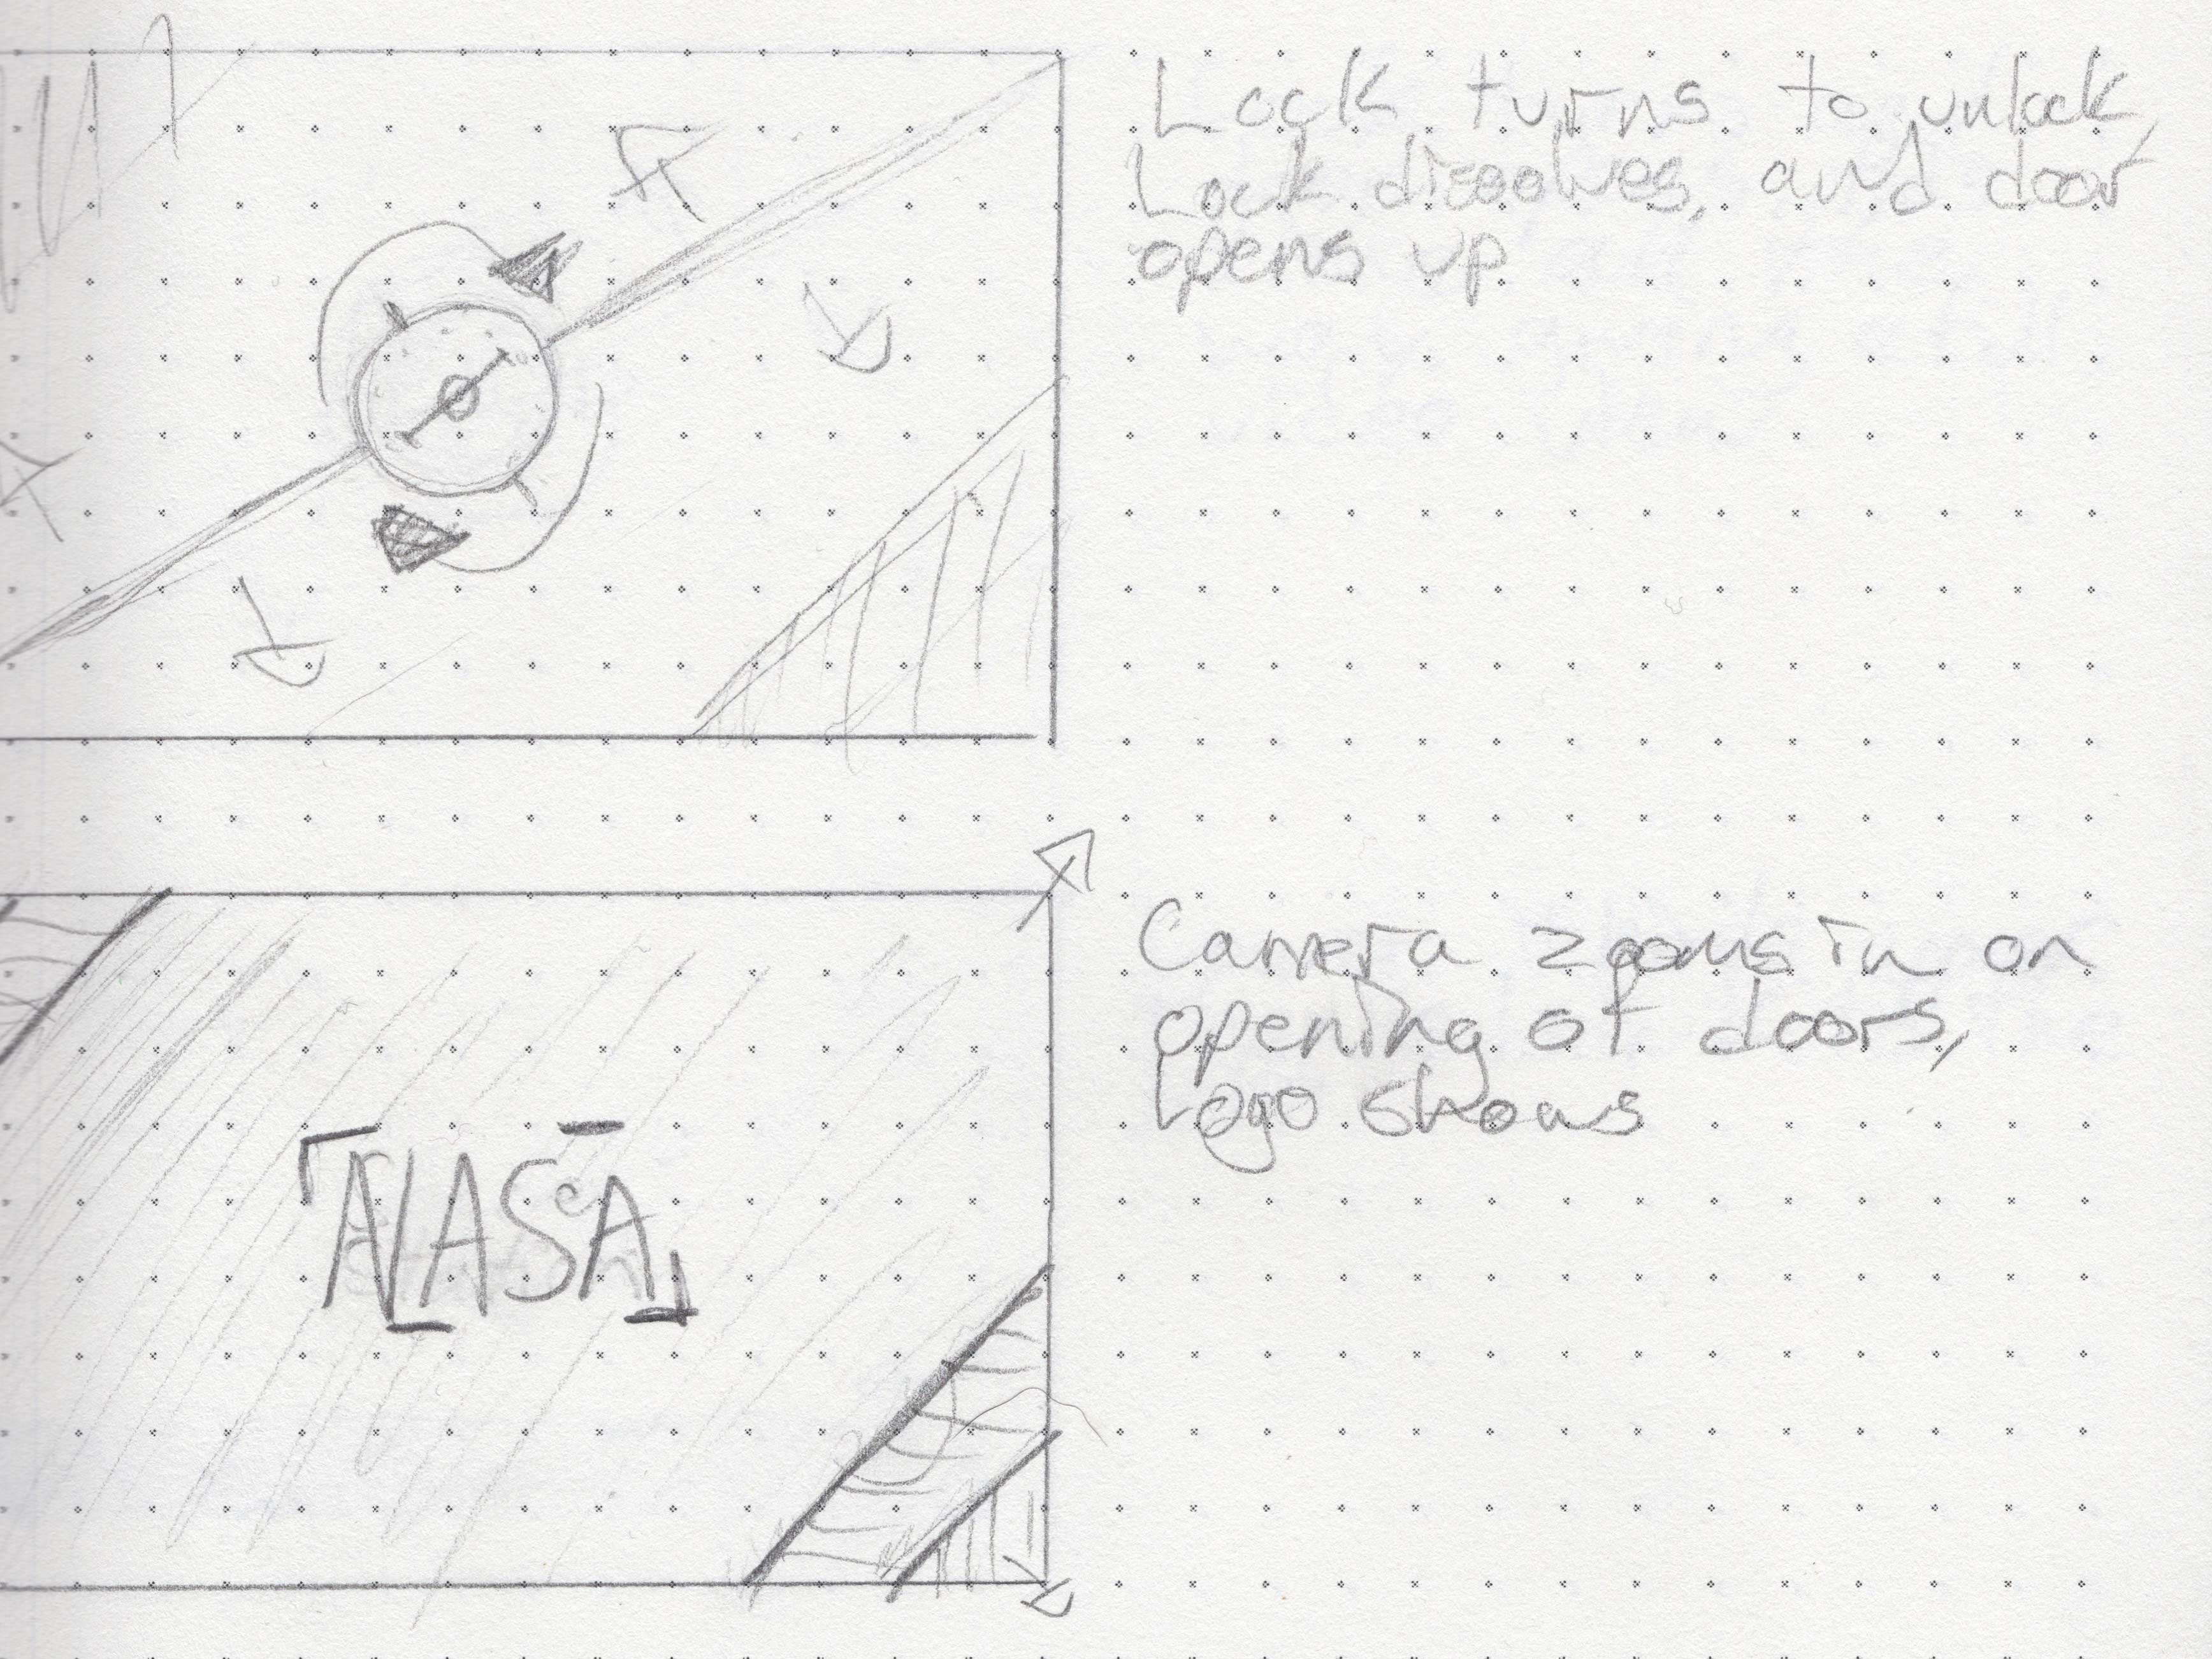 Lock turns to unlock,
Lock dissolves, and door
opens up
Camera zooms in on
opening of doors,
Logo shows